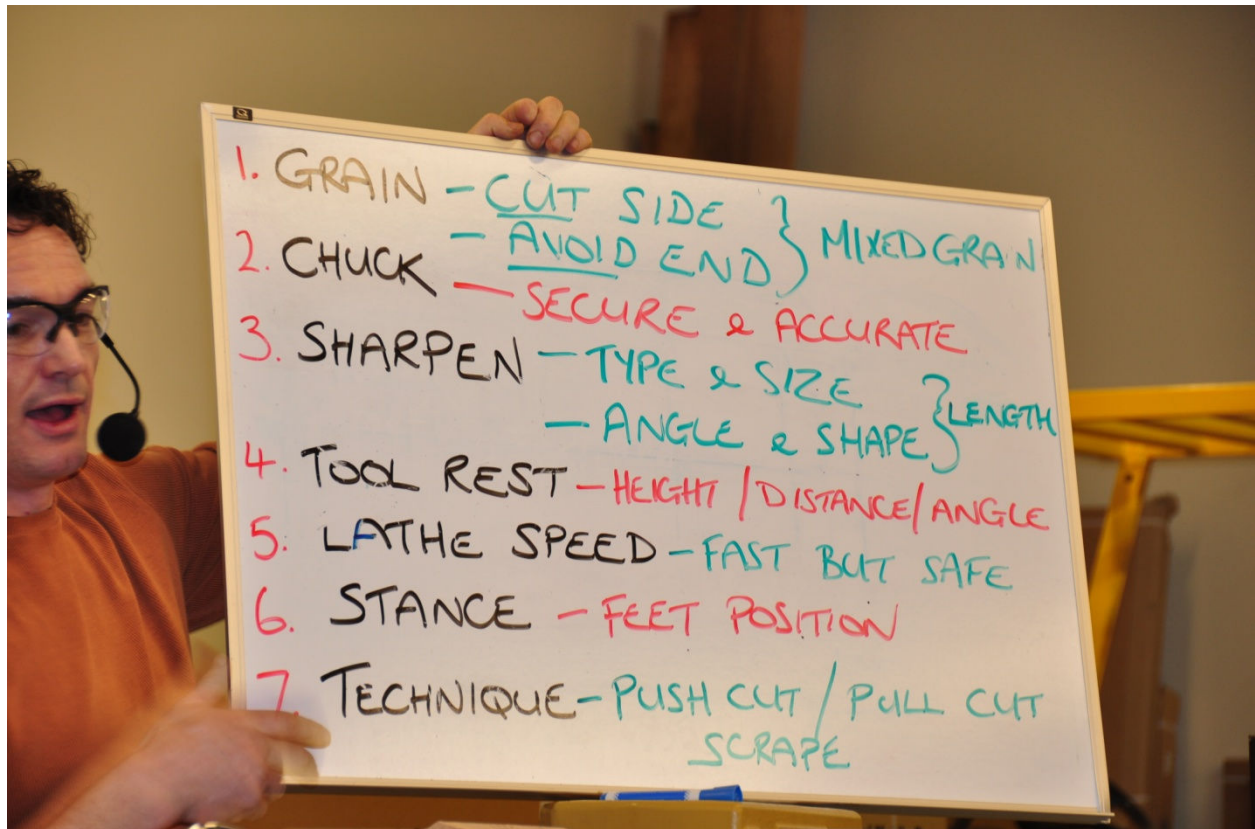 1. GRAIN - CUT SIDE } MIXED GRAIN
- AVOID END
2. CHUCK - SECURE & ACCURATE
3. SHARPEN - TYPE & SIZE } LENGTH
- ANGLE & SHAPE
4. TOOL REST - HEIGHT / DISTANCE / ANGLE
5. LATHE SPEED - FAST BUT SAFE
6. STANCE - FEET POSITION
7. TECHNIQUE - PUSH CUT / PULL CUT
SCRAPE